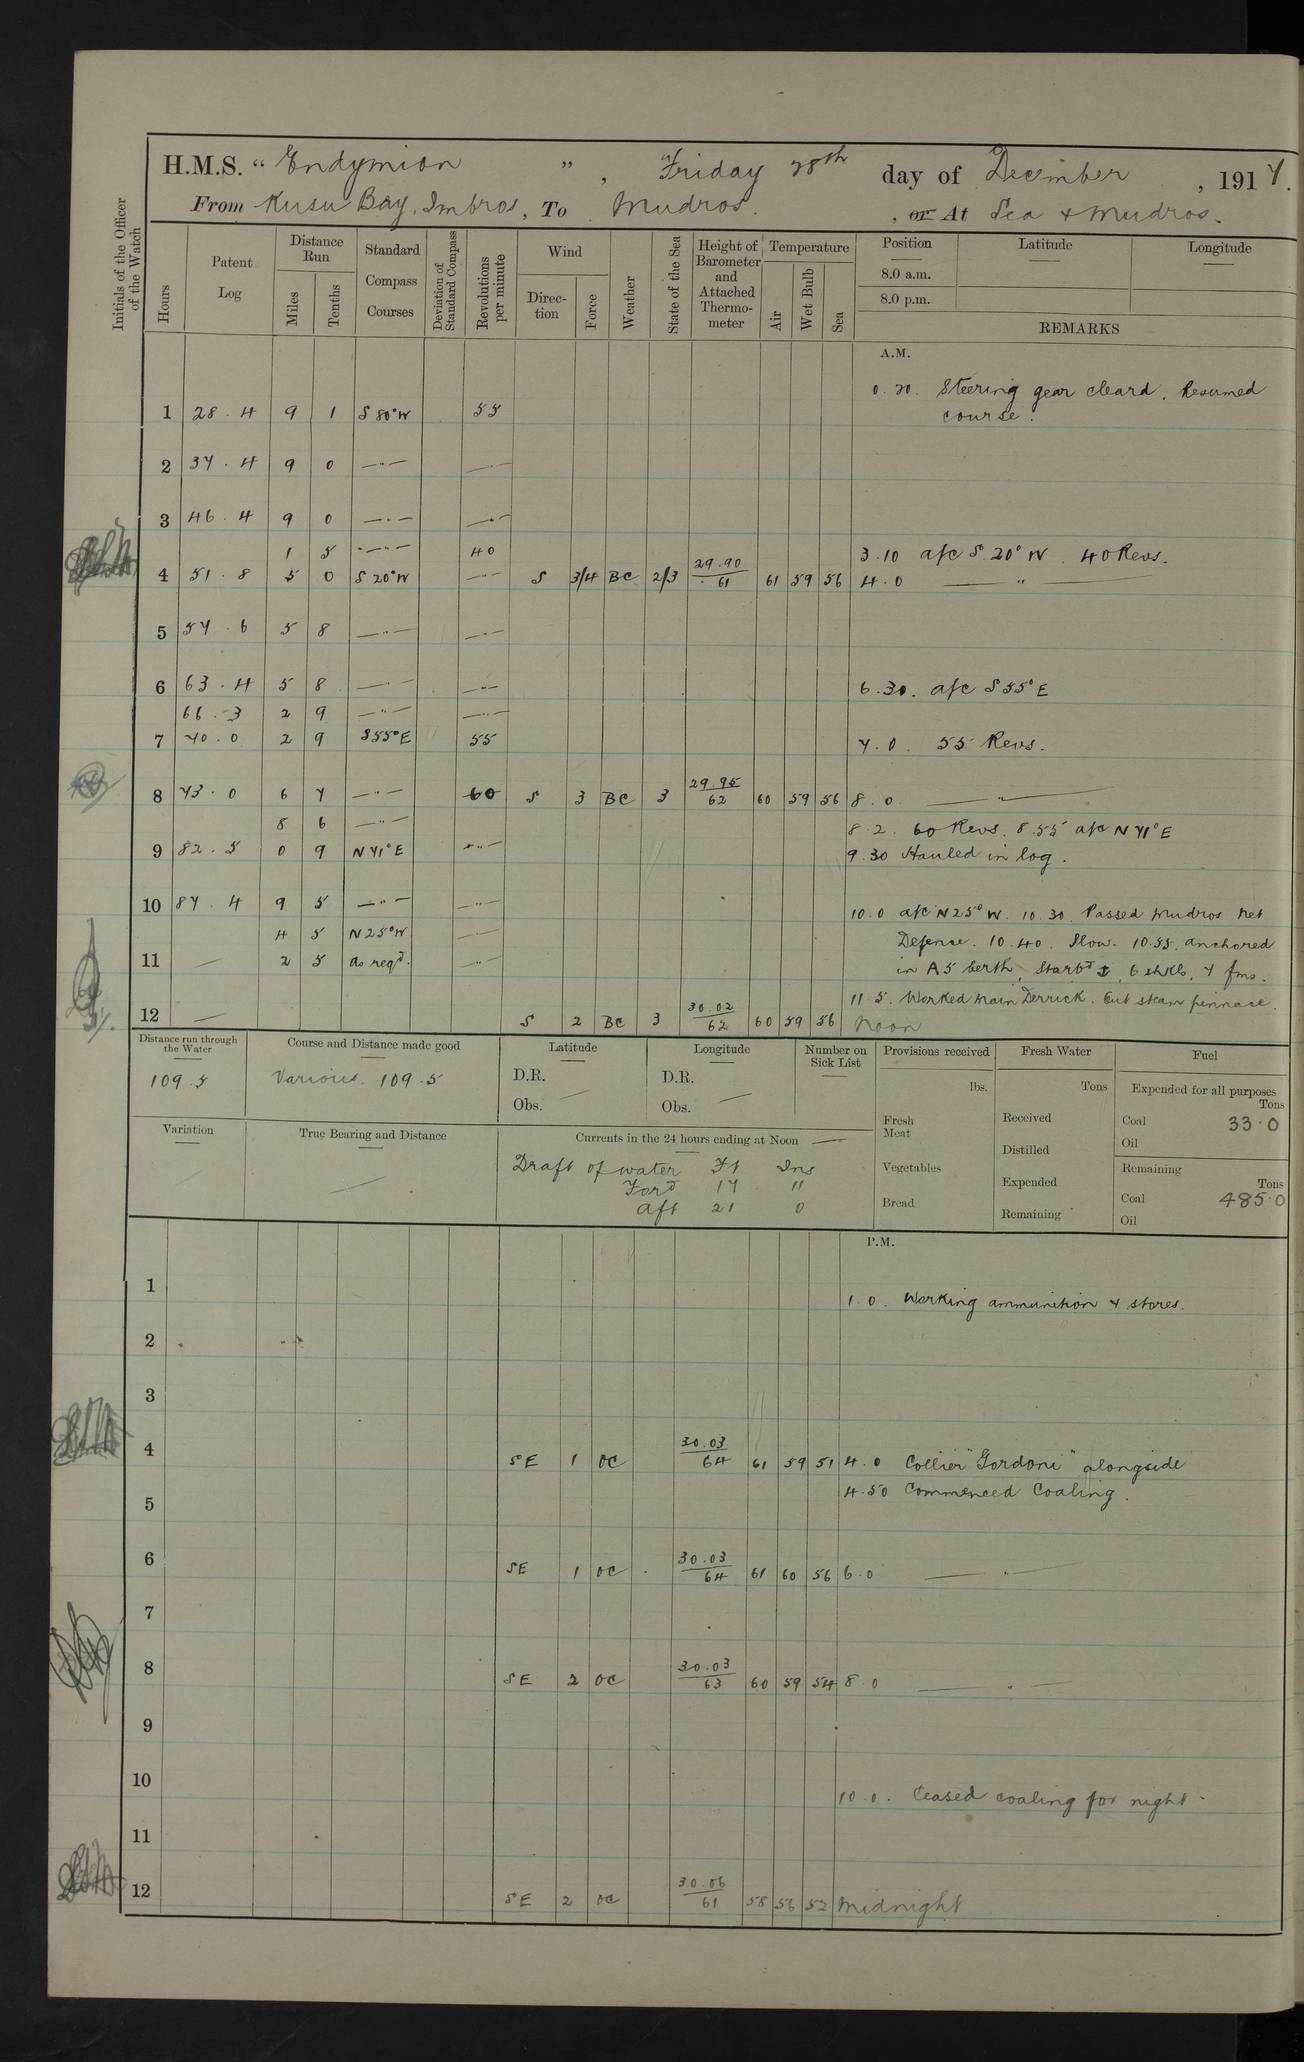 H.M.S. “ Endymion ” , Friday 28th day of December , 1917.
From Kusu Bay, Imbros, To Mudros. , or At Sea & Mudros.
Initials of the Officer of the Watch
Hours
Patent Log
Distance Run
Miles
Tenths
Standard Compass Courses
Deviation of Standard Compass
Revolutions per minute
Wind
Direction
Force
Weather
State of the Sea
Height of Barometer and Attached Thermometer
Temperature
Air
Wet Bulb
Sea
Position Latitude Longitude
8.0 a.m.
8.0 p.m.
REMARKS
A.M.
0.20. Steering gear cleard. Resumed
1 28.4 9 1 S 80°W 55 course.
2 37.4 9 0 —"— —"—
3 46.4 9 0 —"— —"—
1 5 —"— 40 3.10 a/c S.20°W. 40 Revs.
4 51.8 5 0 S 20°W —"— S 3/4 BC 2/3 29.90/61 61 59 56 4.0 —"—
5 57.6 5 8 —"— —"—
6 63.4 5 8 —"— —"— 6.30. a/c S 55°E
66.3 2 9 —"— —"—
7 70.0 2 9 S55°E 55 7.0. 55 Revs.
8 73.0 6 7 —"— 60 S 3 BC 3 29.95/62 60 59 56 8.0 —"—
8 6 —"— 8.2. 60 Revs. 8.55 a/c N 71°E
9 82.5 0 9 N 71°E —"— 9.30 Hauled in log.
10 87.4 9 5 —"— —"— 10.0 a/c N25°W. 10.30. Passed Mudros Net
4 5 N25°W —"— Defence. 10.40. Slow. 10.55. anchored
11 — 2 5 as reqd. —"— in A5 berth, Starbd ⚓, 6 shkls, 7 fms.
11.5. Worked Main Derrick. Out steam pinnace.
12 — S 2 BC 3 30.02/62 60 59 56 Noon
Distance run through the Water
109.5
Course and Distance made good
Various. 109.5
Latitude
D.R.
Obs. —
Longitude
D.R.
Obs. —
Number on Sick List
Provisions received
lbs.
Fresh Meat
Vegetables
Bread
Fresh Water
Tons
Received
Distilled
Expended
Remaining
Fuel
Expended for all purposes
Tons
Coal 33.0
Oil
Remaining
Tons
Coal 485.0
Oil
Variation
True Bearing and Distance
—
Currents in the 24 hours ending at Noon —
Draft of water Ft Ins
Ford 17 "
Aft 21 0
P.M.
1
1.0. Working ammunition & stores.
2
3
4 SE 1 OC 30.03/64 61 59 51 4.0 Collier "Gordoni" alongside
4.50 Commenced Coaling.
5
6 SE 1 OC 30.03/64 61 60 56 6.0 —"—
7
8 SE 2 OC 30.03/63 60 59 54 8.0 —"—
9
10
10.0. Ceased coaling for night.
11
12 SE 2 OC 30.06/61 58 56 52 Midnight